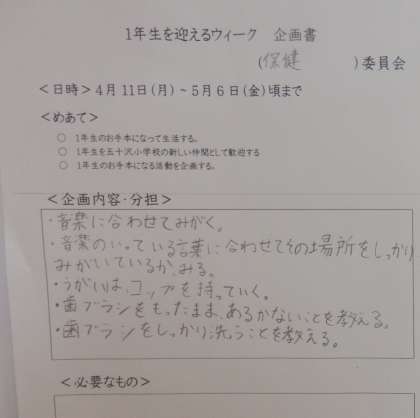 1年生を迎えるウィーク 企画書
(保健 )委員会
<日時>4月11日(月)~5月6日(金)頃まで
<めあて>
○ 1年生のお手本になって生活する。
○ 1年生を五十沢小学校の新しい仲間として歓迎する
○ 1年生のお手本になる活動を企画する。
<企画内容・分担>
・音楽に合わせてみがく。
・音楽のいっている言葉に合わせてその場所をしっかり
みがいているか、みる。
・うがいは、コップを持っていく。
・歯ブラシをもったまま、あるかないことを教える。
・歯ブラシをしっかり洗うことを教える。
<必要なもの>